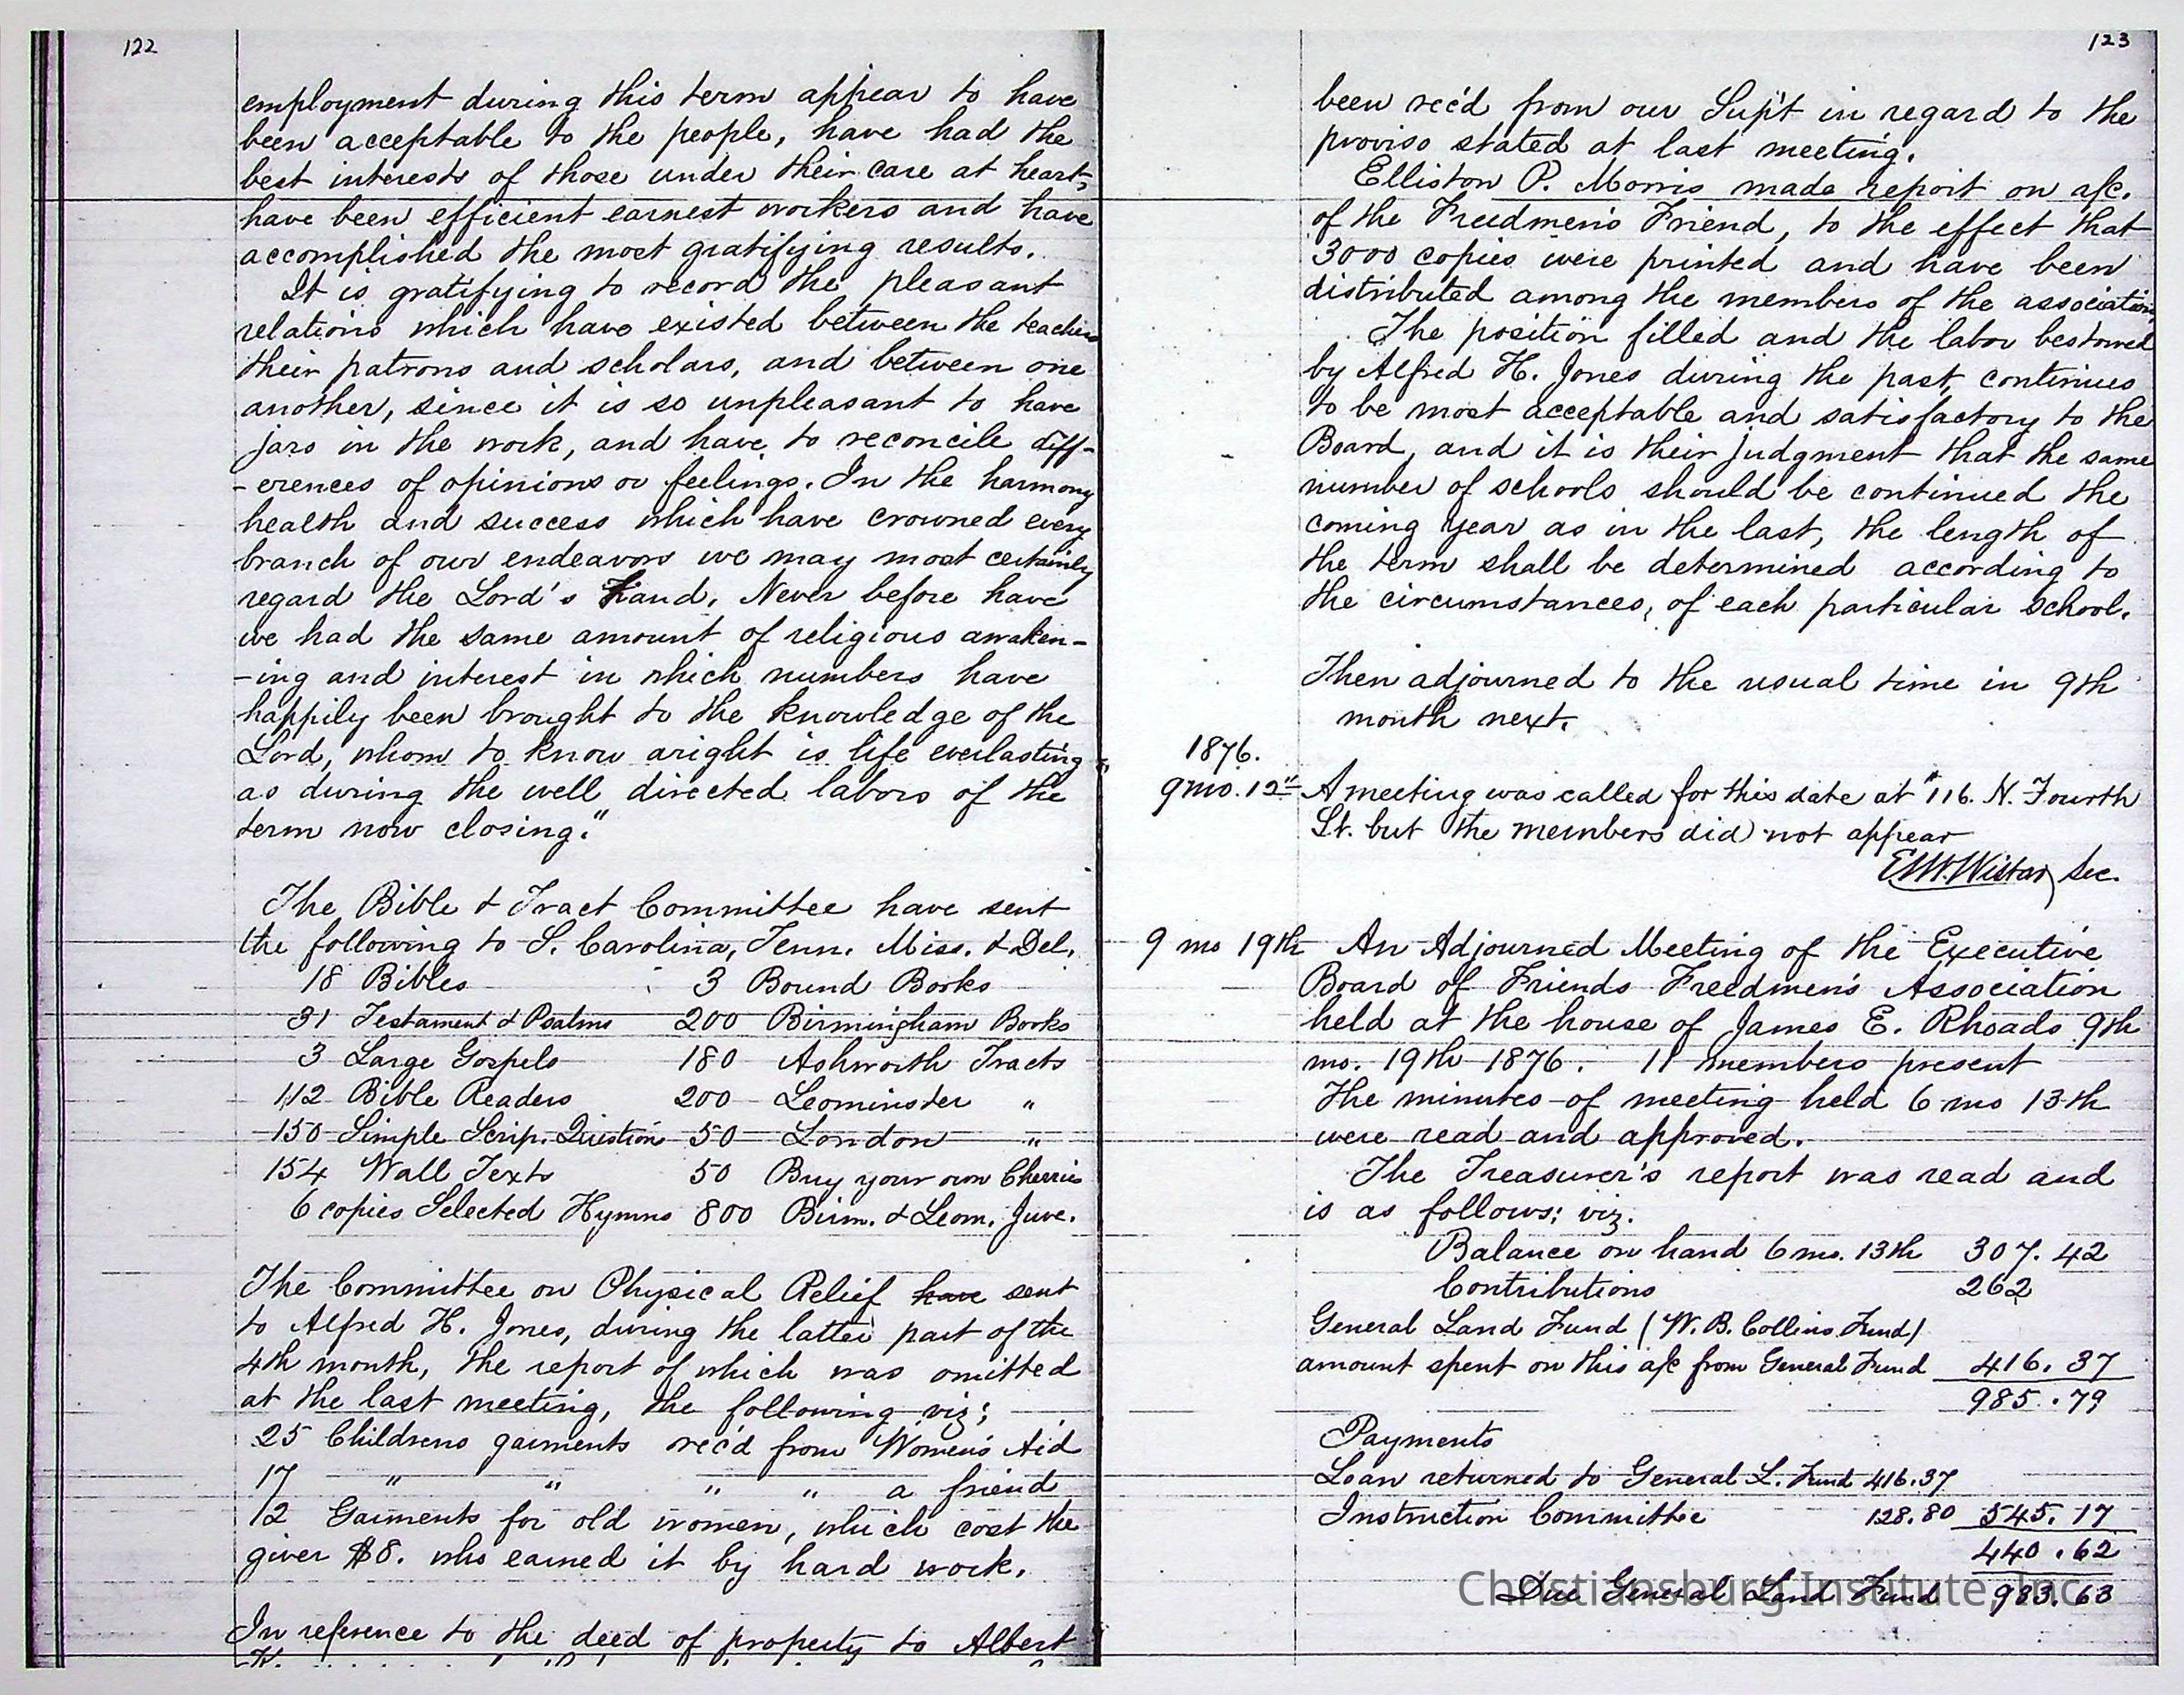 122
employment during this term appear to have
been acceptable to the people, have had the
best interests of those under their care at heart,
have been efficient earnest workers and have
accomplished the most gratifying results.
It is gratifying to record the pleasant
relations which have existed between the teachers
their patrons and scholars, and between one
another, since it is so unpleasant to have
jars in the work, and have to reconcile diff-
-erences of opinions or feelings. In the harmony
health and success which have crowned every
branch of our endeavors we may most certainly
regard the Lord's hand. Never before have
we had the same amount of religious awaken-
-ing and interest in which numbers have
happily been brought to the knowledge of the
Lord, whom to know aright is life everlasting
as during the well directed labors of the
term now closing."
The Bible & Tract Committee have sent
the following to S. Carolina, Tenn. Miss. & Del.
18 Bibles 3 Bound Books
31 Testament & Psalms 200 Birmingham Books
3 Large Gospels 180 Ashworth Tracts
112 Bible Readers 200 Leominster "
150 Simple Scrip. Question 50 London "
154 Wall Texts 50 Buy your own Cherries
6 copies Selected Hymns 800 Birm. & Leom. Juve.
The Committee on Physical Relief have sent
to Alfred H. Jones, during the latter part of the
4th month, the report of which was omitted
at the last meeting, the following viz;
25 Childrens garments rec'd from Women's Aid
17 " " " " a friend
12 Garments for old women, which cost the
giver $8. who earned it by hard work.
In reference to the deed of property to Albert
123
been rec'd from our Sup't in regard to the
proviso stated at last meeting.
Elliston P. Morris made report on a/c.
of the Freedmen's Friend, to the effect that
3000 copies were printed and have been
distributed among the members of the association
The position filled and the labor bestowed
by Alfred H. Jones during the past, continues
to be most acceptable and satisfactory to the
Board, and it is their judgment that the same
number of schools should be continued the
coming year as in the last, the length of
the term shall be determined according to
the circumstances, of each particular school.
Then adjourned to the usual time in 9th
month next.
1876.
9 mo. 12" A meeting was called for this date at 116. N. Fourth
St. but the members did not appear
E.M. Wistar, Sec.
9 mo 19th An Adjourned Meeting of the Executive
Board of Friends Freedmen's Association
held at the house of James E. Rhoads 9th
mo. 19th 1876. 11 members present
The minutes of meeting held 6 mo 13th
were read and approved.
The Treasurer's report was read and
is as follows; viz.
Balance on hand 6 mo. 13th 307.42
Contributions 262
General Land Fund (W. B. Collins Fund)
amount spent on this a/c from General Fund 416.37
985.79
Payments
Loan returned to General L. Fund 416.37
Instruction Committee 128.80 545.17
440.62
Due General Land Fund 983.63
Christiansburg Institute, Inc.